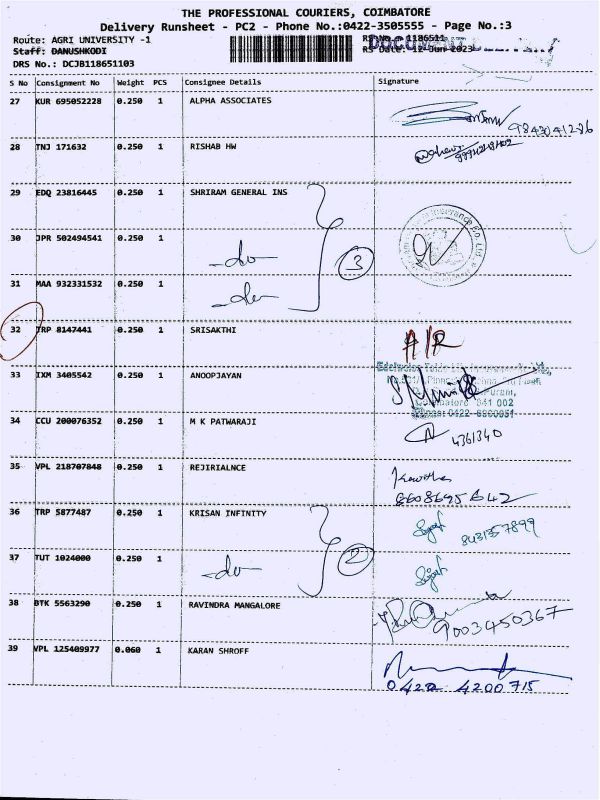 THE PROFESSIONAL COURIERS, COIMBATORE
Delivery Runsheet - PC2 - Phone No.:0422-3505555 - Page No.:3
Route: AGRI UNIVERSITY -1 RS No.: 1186511
Staff: DANUSHKODI RS Date: 12-Jun-2023
DRS No.: DCJB118651103
S No Consignment No Weight PCS Consignee Details Signature
27 KUR 695052228 0.250 1 ALPHA ASSOCIATES
9843041286
28 TNJ 171632 0.250 1 RISHAB HW
29 EDQ 23816445 0.250 1 SHRIRAM GENERAL INS
30 JPR 502494541 0.250 1 -do- 3
31 MAA 932331532 0.250 1 -do-
32 TRP 8147441 0.250 1 SRISAKTHI A/R
33 IXM 3405542 0.250 1 ANOOPJAYAN
641 002
34 CCU 200076352 0.250 1 M K PATWARAJI 4361340
35 VPL 218707848 0.250 1 REJIRIALNCE
8608695642
36 TRP 5877487 0.250 1 KRISAN INFINITY
8431357899
37 TUT 1024000 0.250 1 -do- 2
38 BTK 5563290 0.250 1 RAVINDRA MANGALORE
9003450367
39 VPL 125409977 0.060 1 KARAN SHROFF
0422 4200715